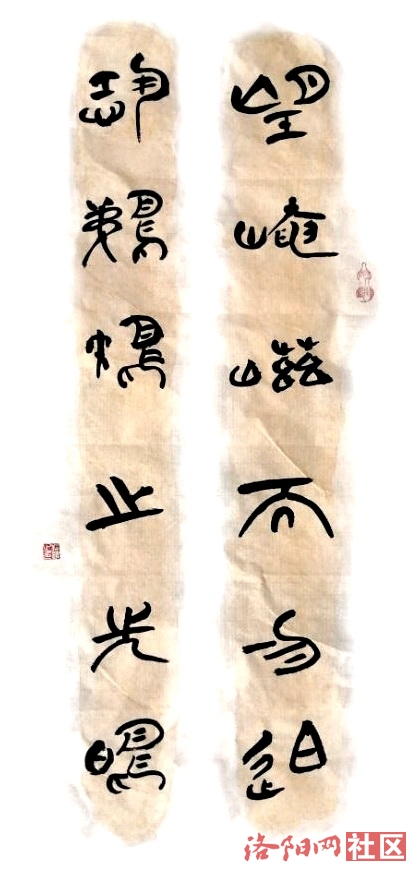 望崦嵫而勿迫
恐鵜鴂之先鳴
洛阳网社区